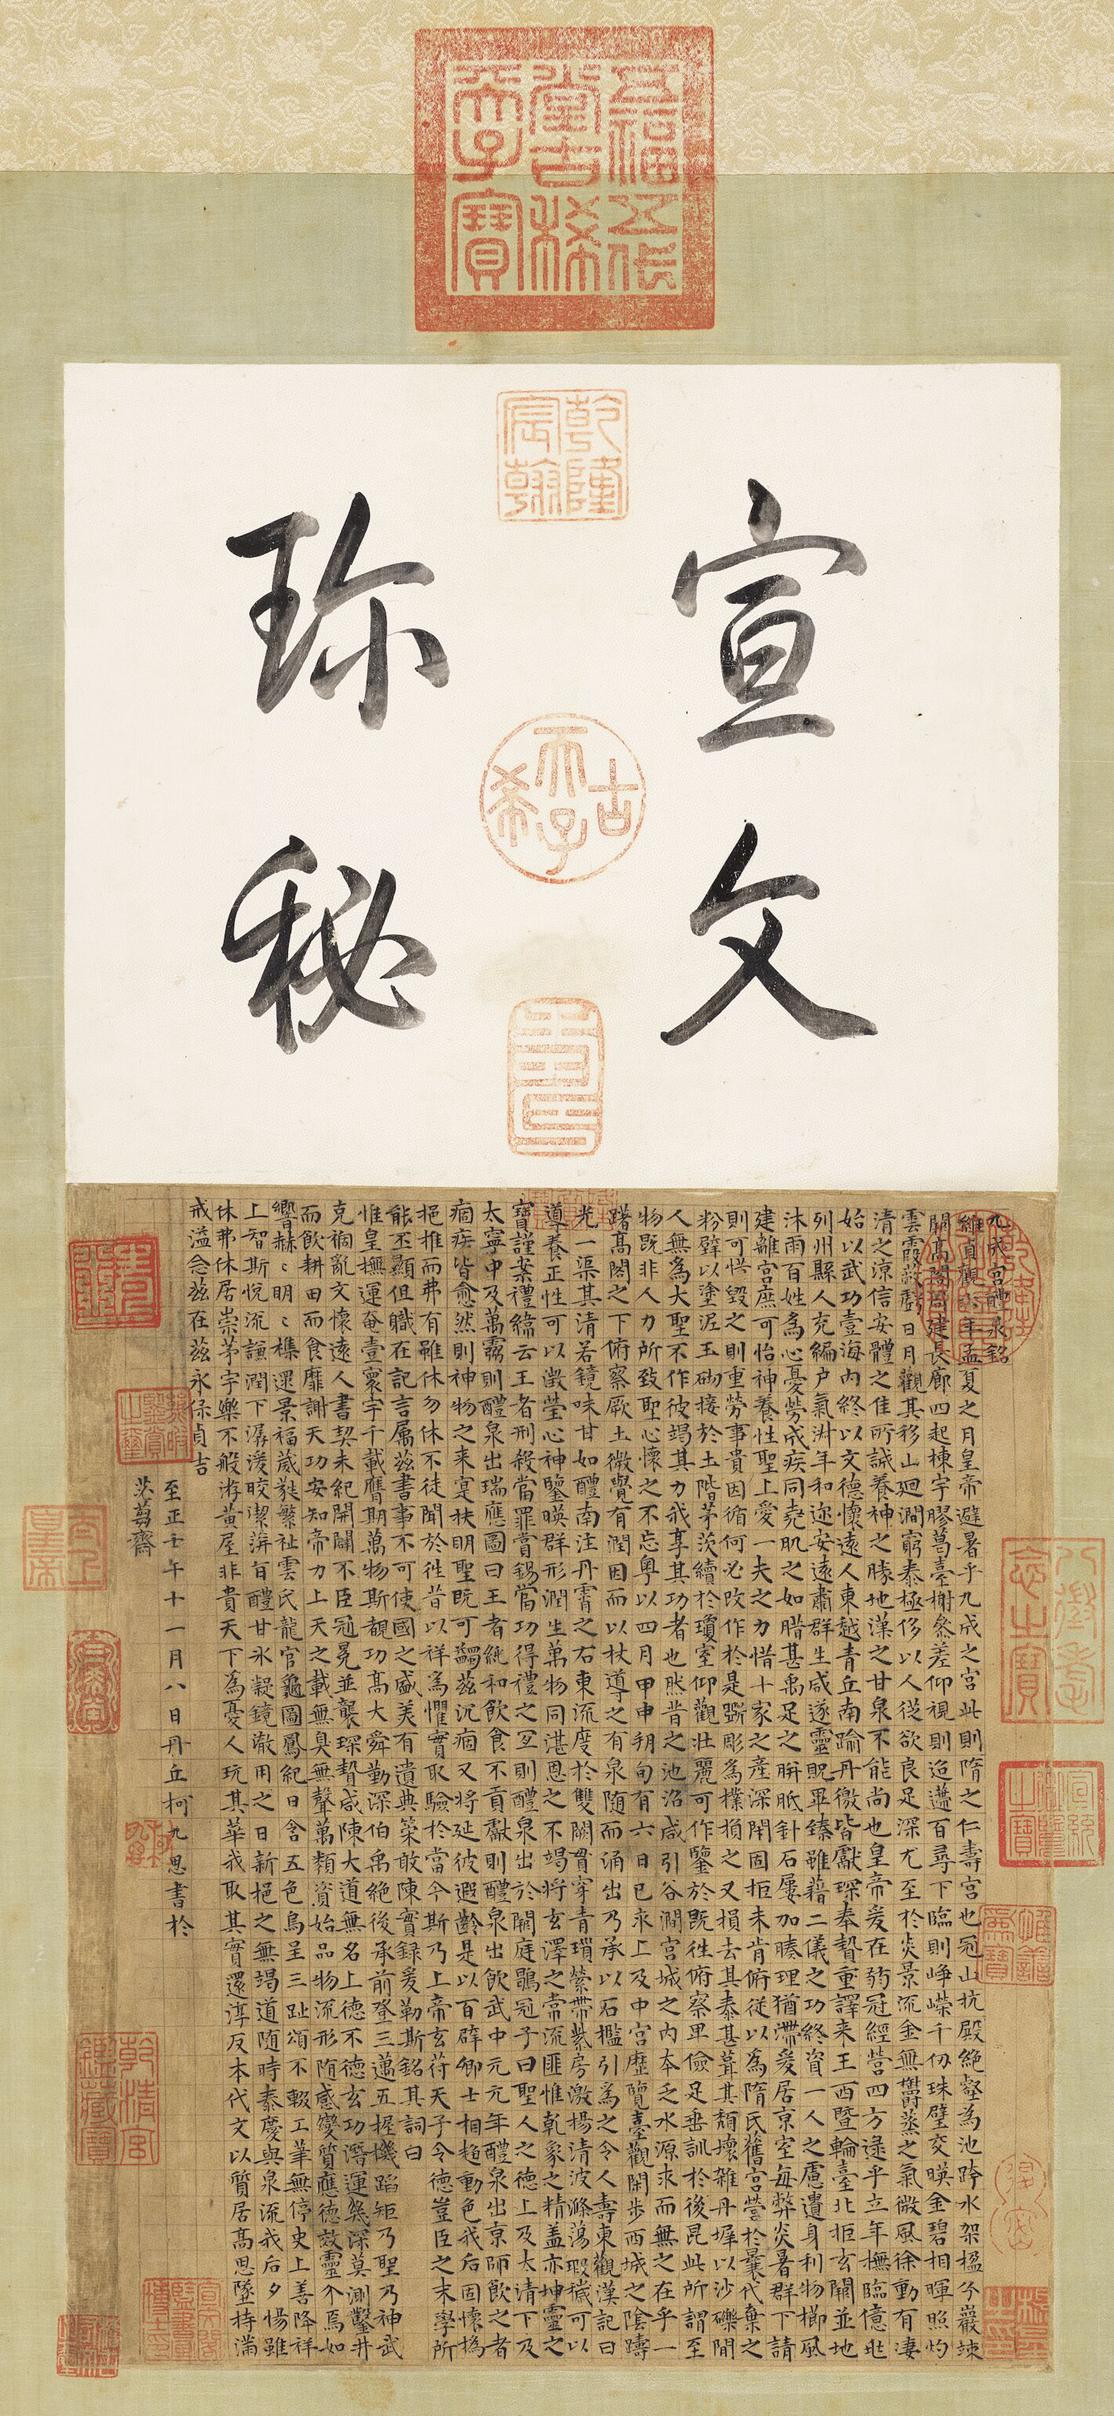 五福五代
堂古稀
天子寶
乾隆
宸翰
宣文
珍秘
古希天子
九成宮醴泉銘
維貞觀六年孟夏之月皇帝避暑乎九成之宮此則隋之仁壽宮也冠山抗殿絕壑為池跨水架楹分巖竦
闕高閣周建長廊四起棟宇膠葛臺榭參差仰視則迢遰百尋下臨則崢嶸千仞珠璧交暎金碧相暉照灼
雲霞蔽虧日月觀其移山迴澗窮泰極侈以人從欲良足深尤至於炎景流金無鬱蒸之氣微風徐動有凄
清之涼信安體之佳所誠養神之勝地漢之甘泉不能尚也皇帝爰在弱冠經營四方逮乎立年撫臨億兆
始以武功壹海內終以文德懷遠人東越青丘南踰丹徼皆獻琛奉贄重譯来王西暨輪臺北拒玄闕並地
列州縣人充編戶氣淑年和迩安遠肅群生咸遂靈貺畢臻雖藉二儀之功終資一人之慮遺身利物櫛風
沐雨百姓為心憂勞成疾同堯肌之如腊甚禹足之胼胝針石屢加腠理猶滯爰居京室每弊炎暑群下請
建離宮庶可怡神養性聖上愛一夫之力惜十家之產深閉固拒未肯俯從以為隋氏舊宮營於曩代棄之
則可惜毀之則重勞事貴因循何必改作於是斲彫為樸損之又損去其泰甚葺其頹壞雜丹墀以沙礫間
粉壁以塗泥玉砌接於土階茅茨續於瓊室仰觀壯麗可作鑒於既往俯察卑儉足垂訓於後昆此所謂至
人無為大聖不作彼竭其力我享其功者也然昔之池沼咸引谷澗宮城之內本乏水源求而無之在乎一
物既非人力所致聖心懷之不忘粵以四月甲申朔旬有六日己亥上及中宮歷覽臺觀閑步西城之陰躊
躇高閣之下俯察厥土微覺有潤因而以杖導之有泉隨而涌出乃承以石檻引為之令人壽東觀漢記曰
光一渠其清若鏡味甘如醴南注丹霄之右東流度於雙闕貫穿青瑣縈帶紫房激揚清波滌蕩瑕穢可以
導養正性可以澂瑩心神鑒暎群形潤生萬物同湛恩之不竭將玄澤之常流匪惟乾象之精蓋亦坤靈之
寶謹案禮緯云王者刑殺當罪賞錫當功得禮之宜則醴泉出於闕庭鶡冠子曰聖人之德上及太清下及
太寧中及萬靈則醴泉出瑞應圖曰王者純和飲食不貢獻則醴泉出飲武中元元年醴泉出京師飲之者
痼疾皆愈然則神物之来寔扶明聖既可蠲茲沉痼又將延彼遐齡是以百辟卿士相趨動色我后固懷撝
挹推而弗有雖休勿休不徒聞於往昔以祥為懼實取驗於當今斯乃上帝玄符天子令德豈臣之末學所
能丕顯但職在記言屬茲書事不可使國之盛美有遺典策敢陳實錄爰勒斯銘其詞曰
惟皇撫運奄壹寰宇千載膺期萬物斯覩功高大舜勤深伯禹絕後承前登三邁五握機蹈矩乃聖乃神武
克禍亂文懷遠人書契未紀開闢不臣冠冕並襲琛贄咸陳大道無名上德不德玄功潛運幾深莫測鑿井
而飲耕田而食靡謝天功安知帝力上天之載無臭無聲萬類資始品物流形隨感變質應德效靈介焉如
響赫〻明〻雜還景福葳蕤繁祉雲氏龍官龜圖鳳紀日含五色烏呈三趾頌不輟工筆無停史上善降祥
上智斯悅流謙潤下潺湲皎潔蓱旨醴甘冰凝鏡澈用之日新挹之無竭道隨時泰慶與泉流我后夕惕雖
休弗休居崇茅宇樂不般游黃屋非貴天下為憂人玩其華我取其實還淳反本代文以質居高思墜持滿
戒溢念茲在茲永保貞吉
至正壬午十一月八日丹丘柯九思書於
芖蒭齋
太上皇帝
八徵耄念之寶
宣統御覽之寶
乾清宮鑒藏寶